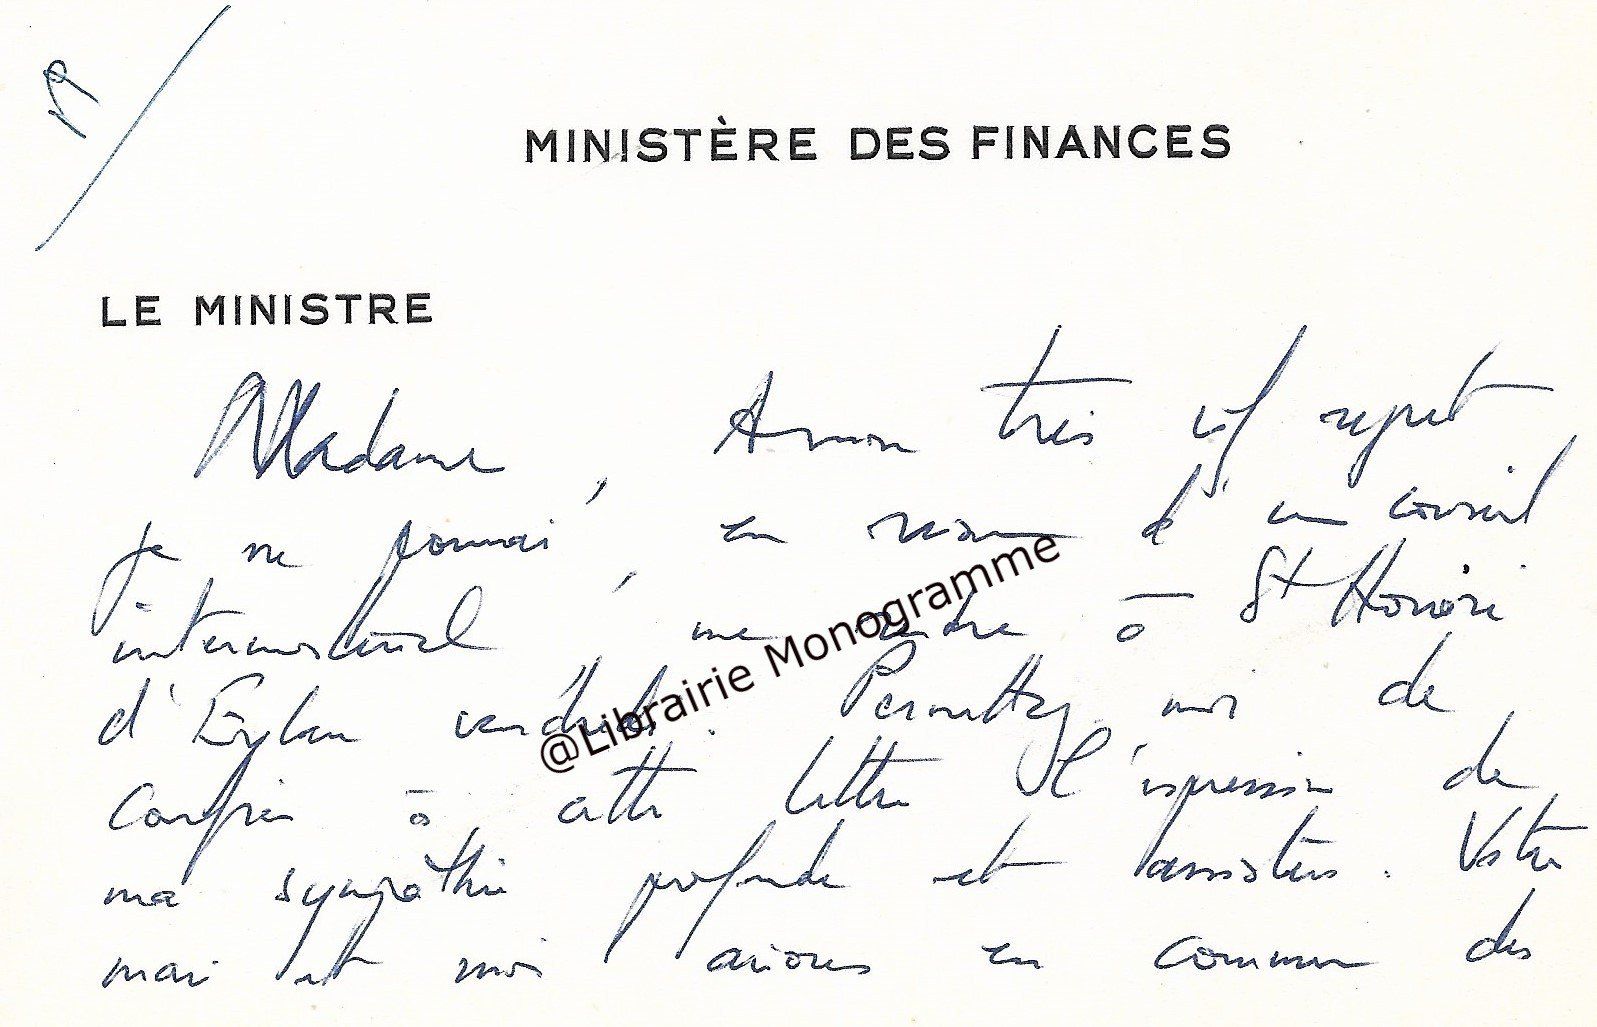 MINISTÈRE DES FINANCES
LE MINISTRE
Madame, A mon très vif regret
je ne pourrai, en raison d'un conseil
interministériel, me rendre à St Honoré
d'Eylau vendredi. Permettez moi de
confier à cette lettre l'expression de
ma sympathie profonde et attristée. Votre
mari et moi avions en commun des
@Librairie Monogramme